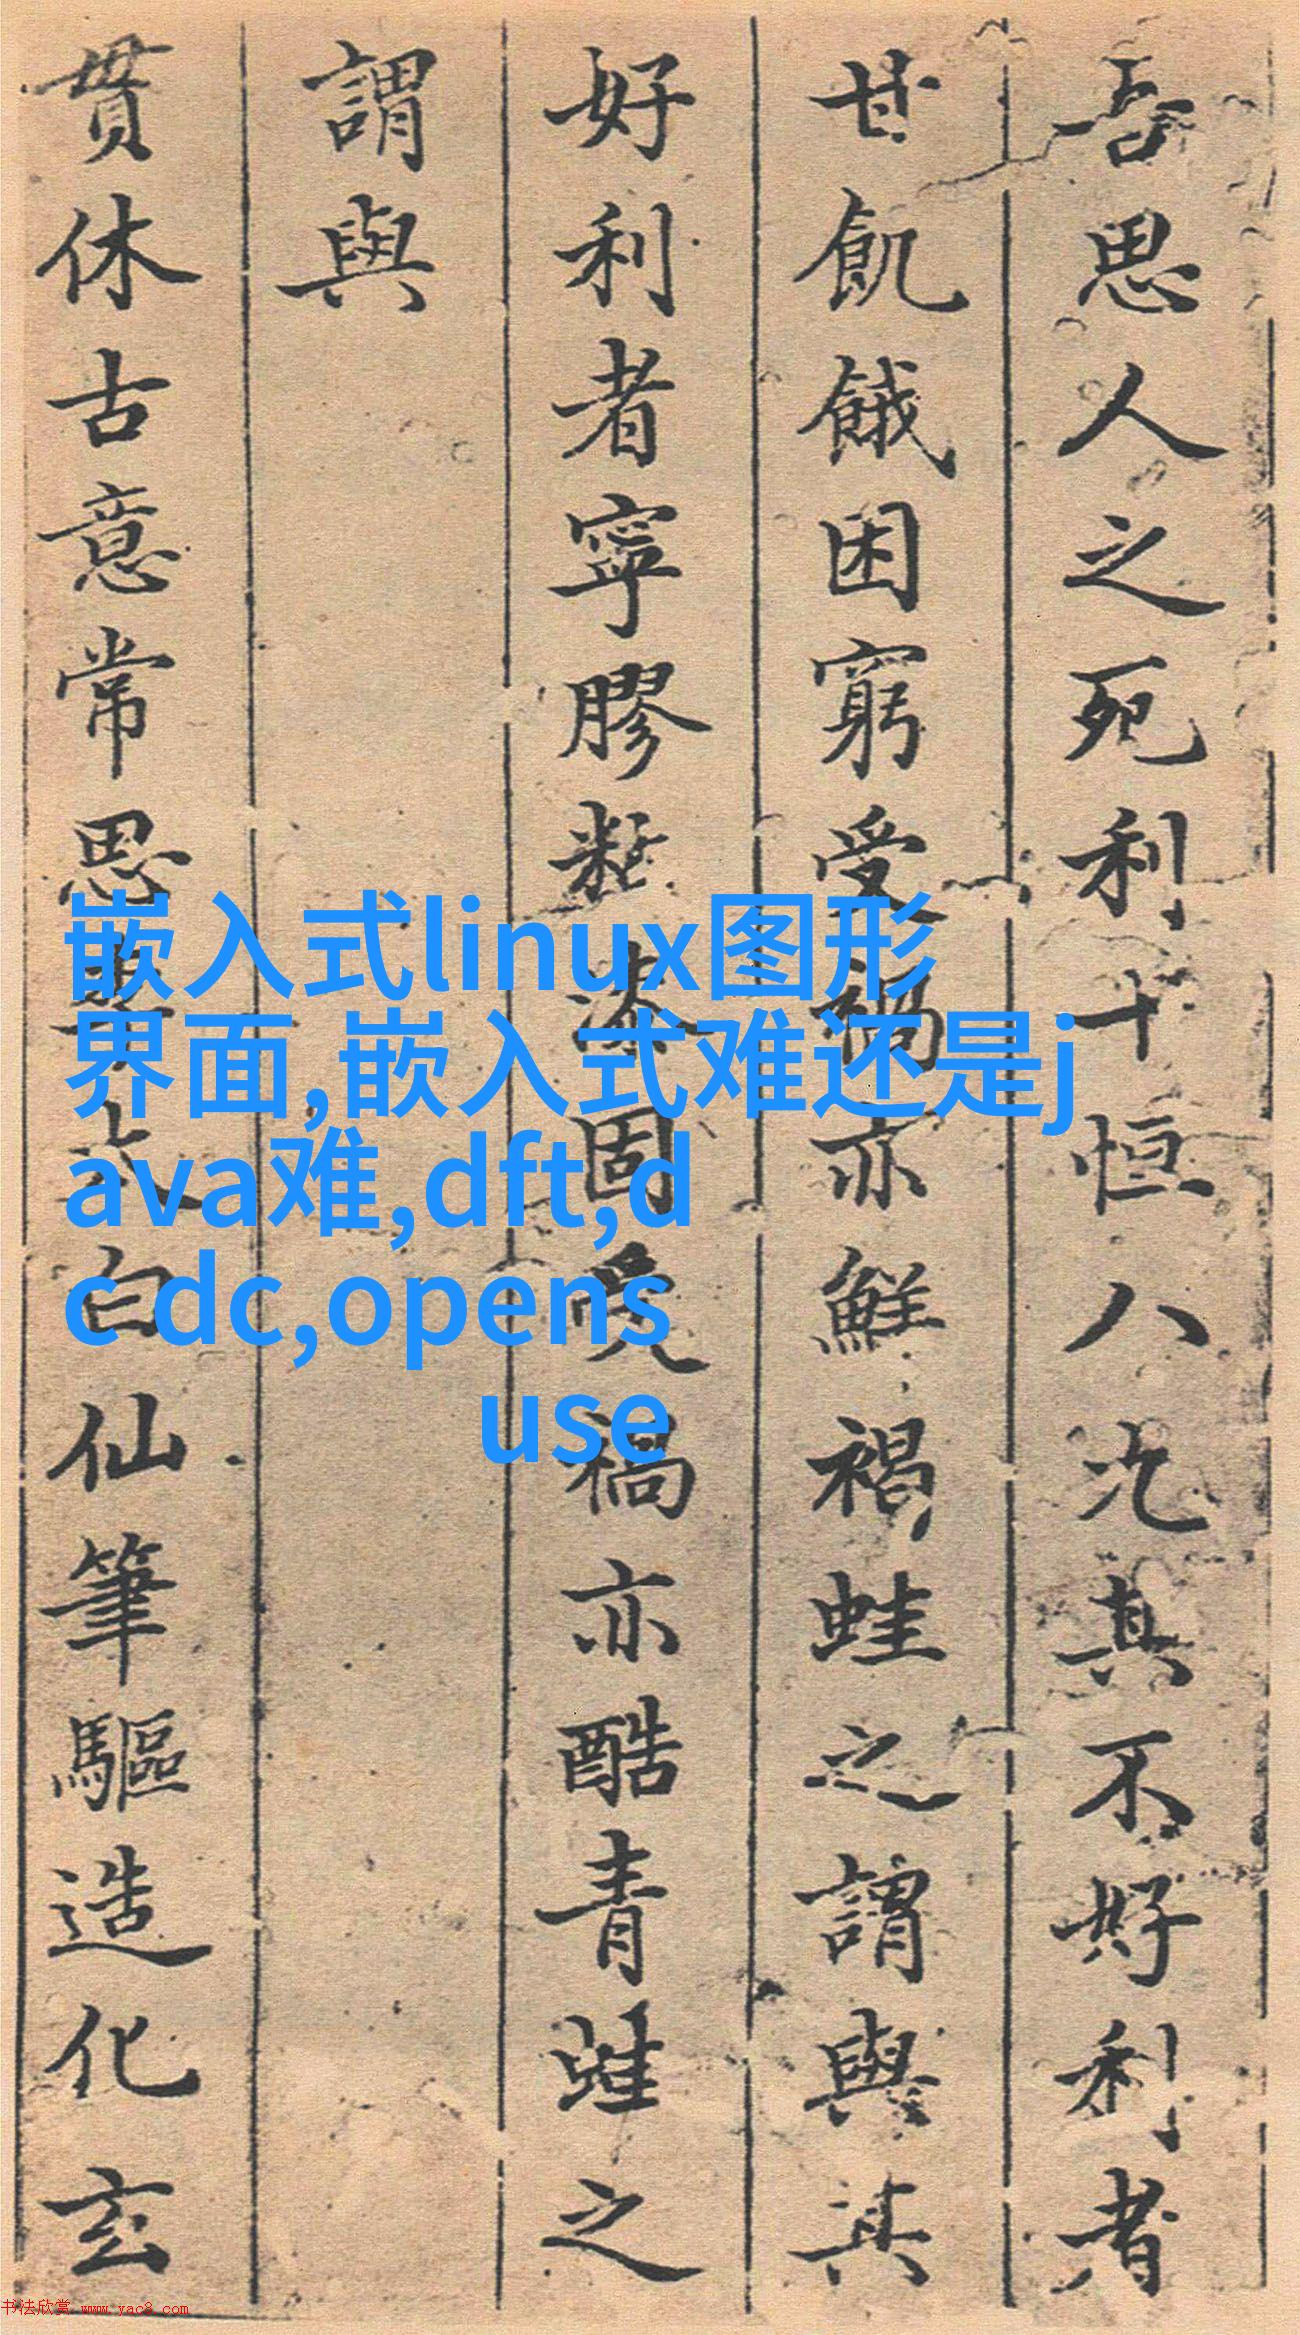 吾思人之死利十恒八九其不好利者
甘飢餓困窮受禍亦鮮褐蛙之謂與其
好利者寧膠黏漆固受禍亦酷青蛙之
謂與
貫休古意常思李太白仙筆驅造化玄
嵌入式linux图形
界面,嵌入式难还是j
ava难,dft,d
c dc,opens
use
书法欣赏 www.yac8.com